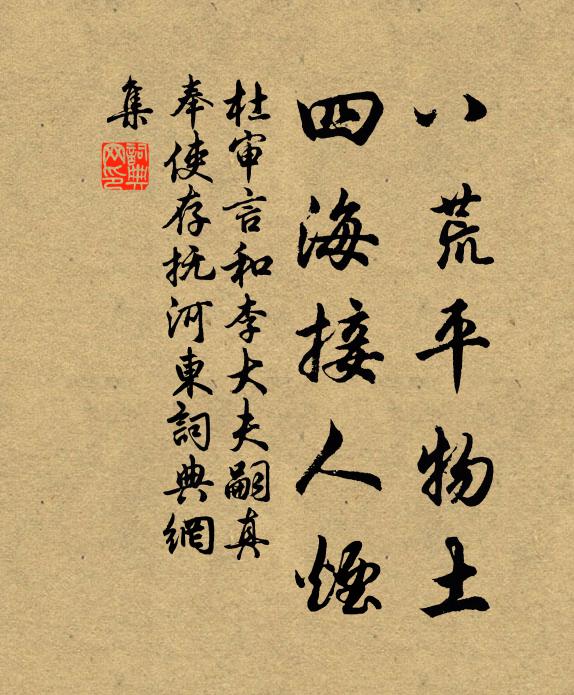 八荒平物土
四海接人煙
杜审言和李大夫嗣真
奉使存抚河東詞典網
集
詞典网印